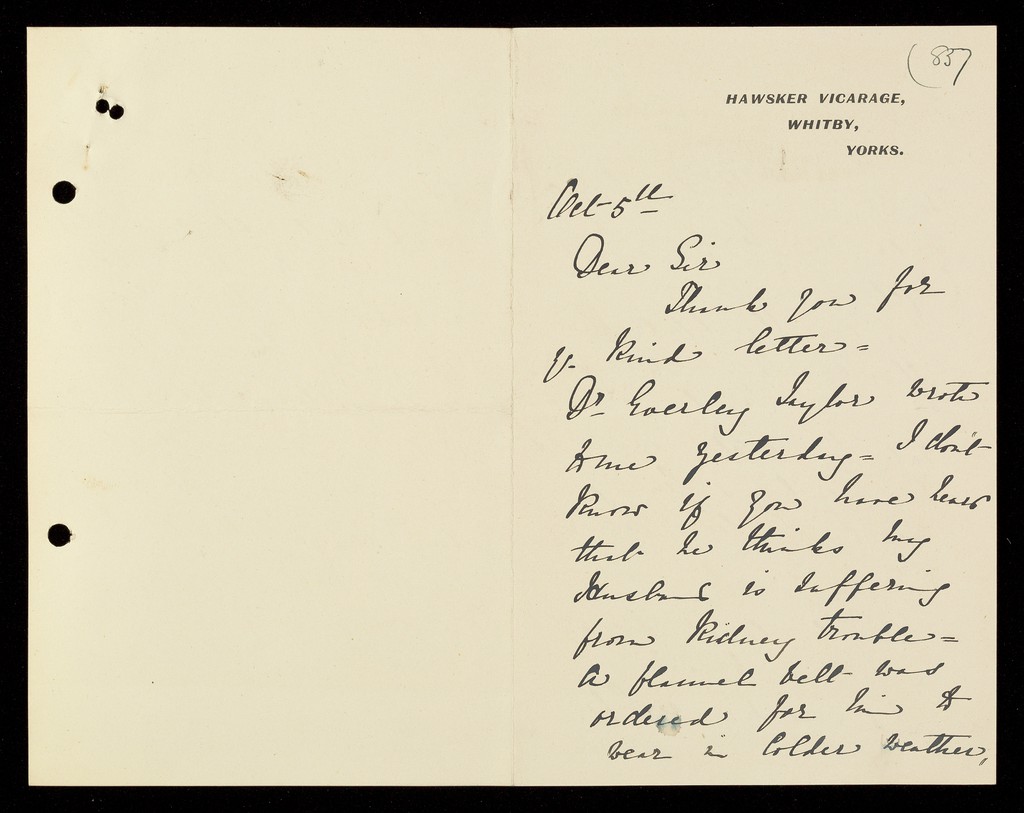 (85)
HAWSKER VICARAGE,
WHITBY,
YORKS.
Oct 5th
Dear Sir
Thank you for
yr. kind letter =
Dr. Everley Taylor wrote
to me yesterday = I don't
know if you have heard
that he thinks my
Husband is suffering
from kidney trouble =
A flannel belt was
ordered for him to
wear in colder weather,